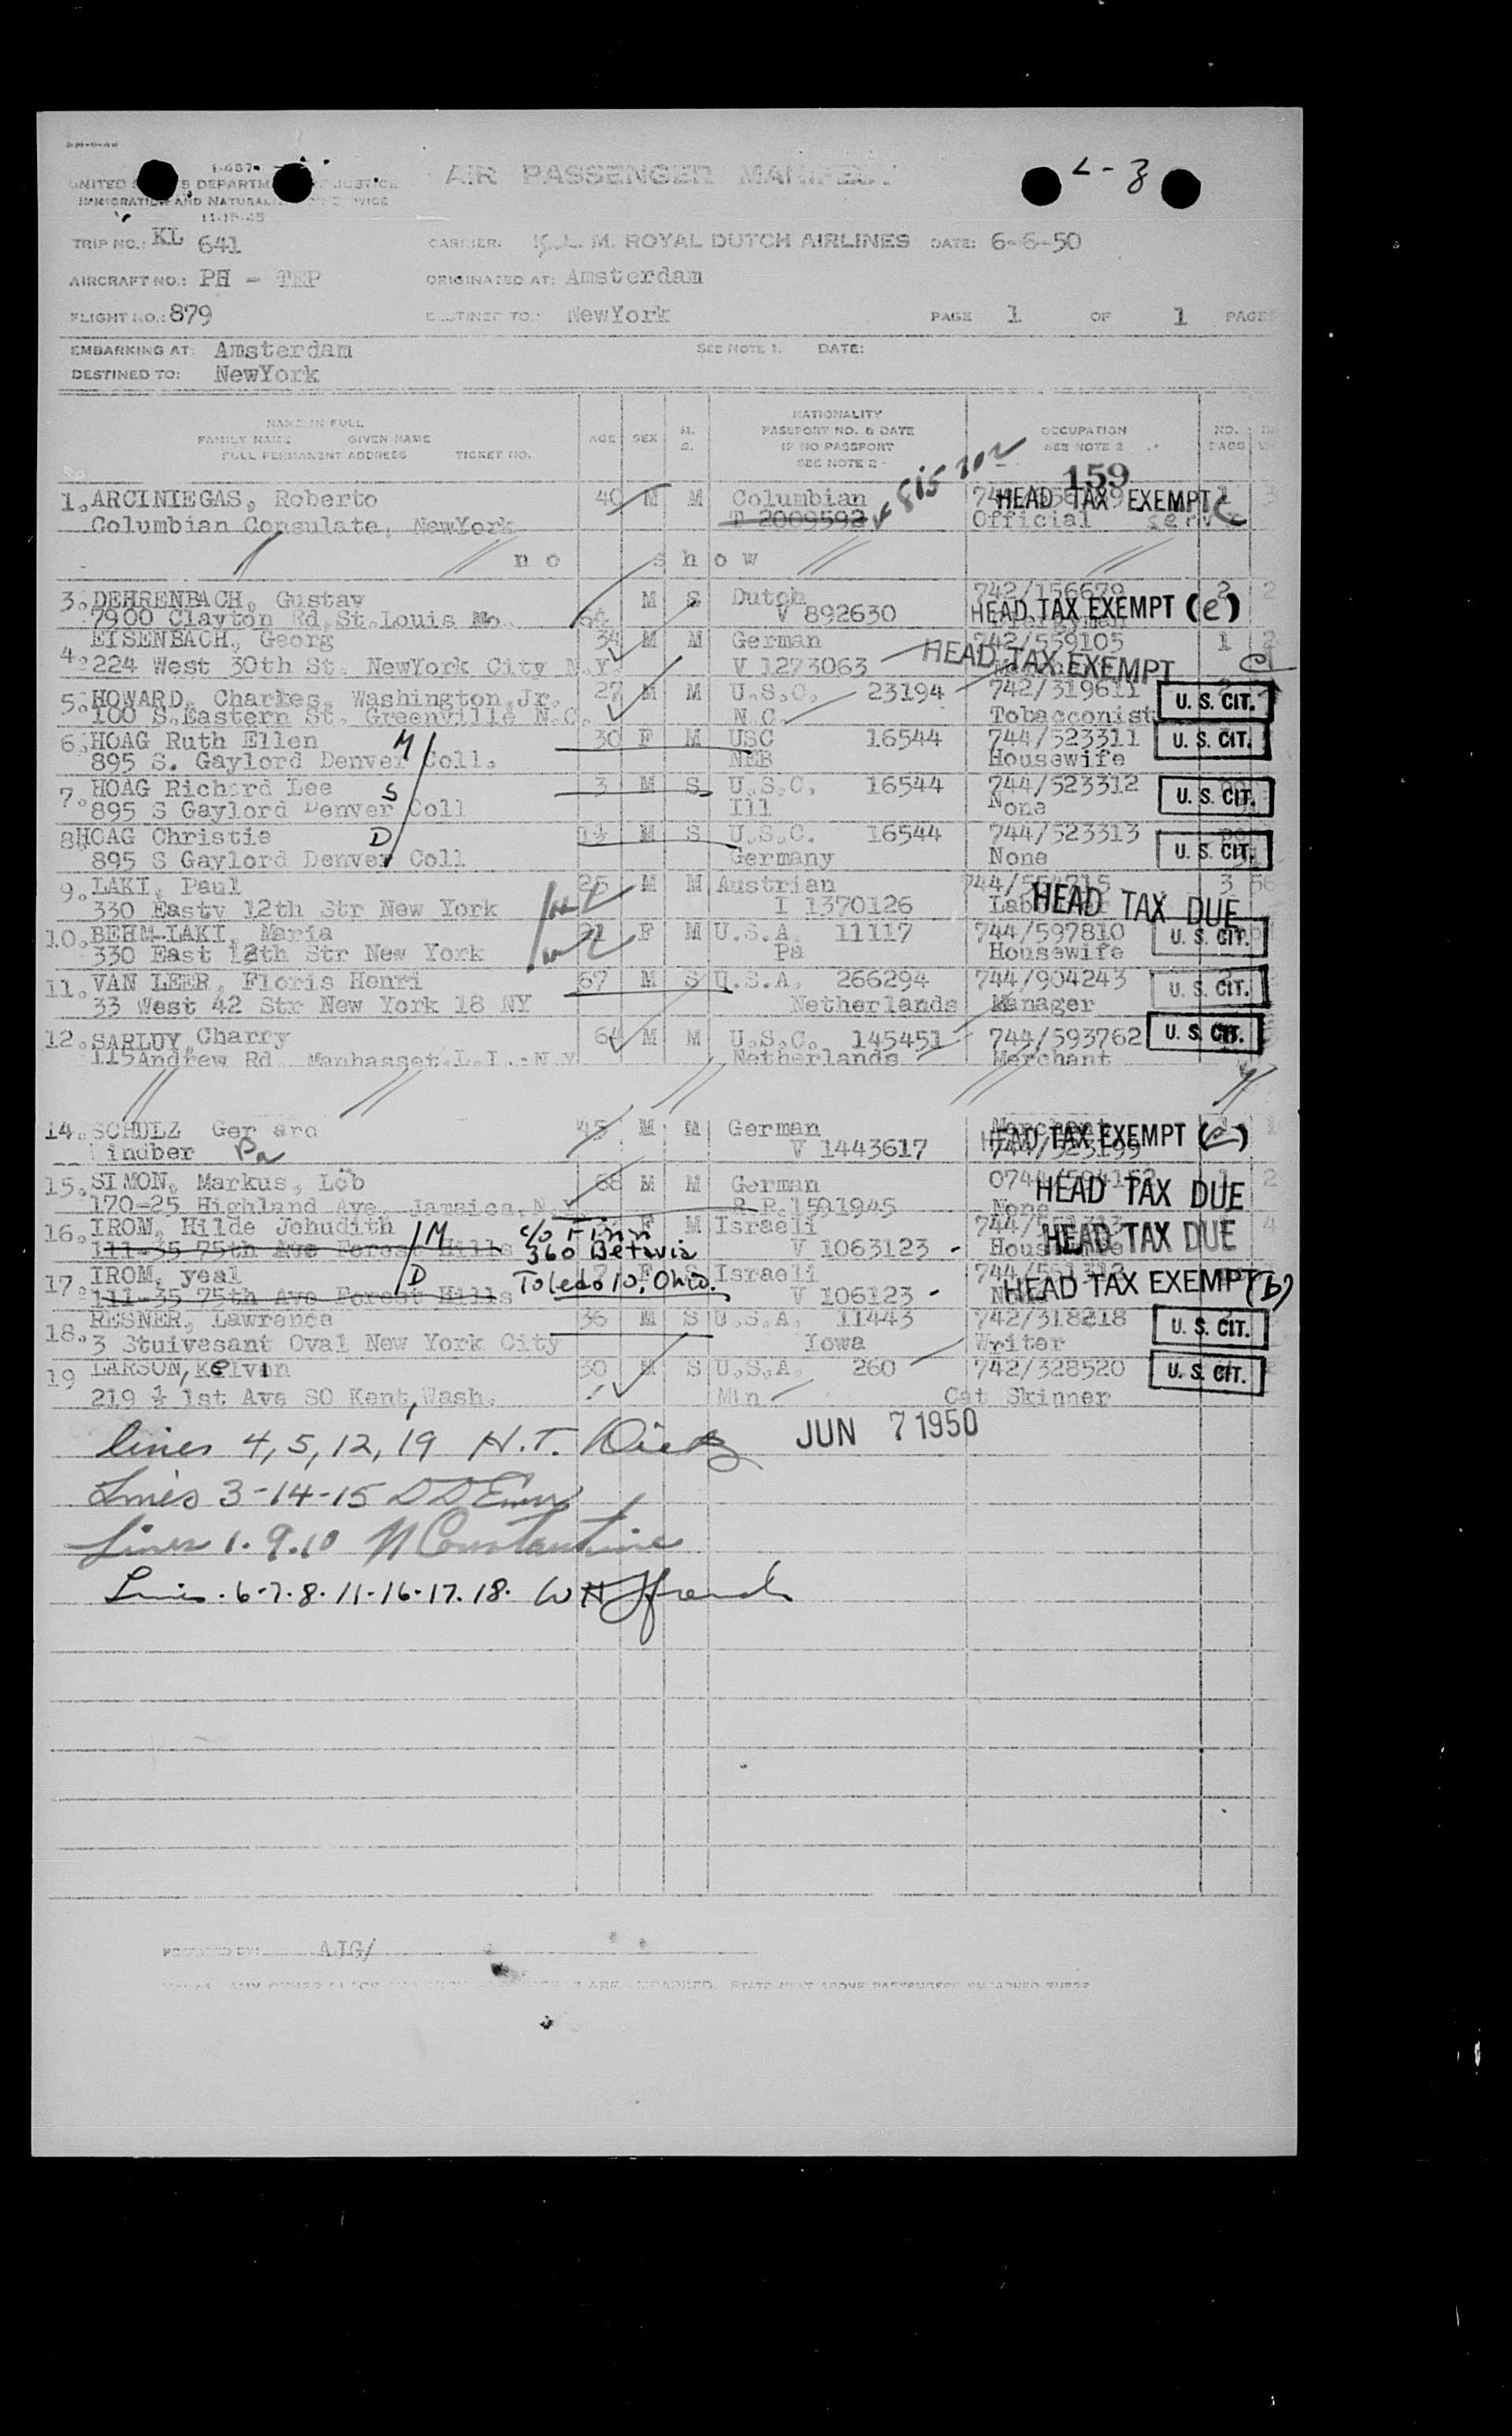 L-3
I-487
UNITED DEPARTM JUSTICE
IMMIGRATION AND NATURAL
11-15-45
AIR PASSENGER MANIFEST
TRIP NO.: KL 641 CARRIER: K.L.M. ROYAL DUTCH AIRLINES DATE: 6-6-50
AIRCRAFT NO.: PH - TEP ORIGINATED AT: Amsterdam
FLIGHT NO.: 879 DESTINED TO.: NewYork PAGE 1 OF 1 PAGES
EMBARKING AT: Amsterdam SEE NOTE 1. DATE:
DESTINED TO: NewYork
NAME IN FULL
FAMILY NAME GIVEN NAME
FULL PERMANENT ADDRESS TICKET NO.
AGE SEX M. S.
NATIONALITY
PASSPORT NO. & DATE
IF NO PASSPORT
SEE NOTE 2
OCCUPATION
SEE NOTE 2
NO. BAGS
815 202
159
1. ARCINIEGAS, Roberto 40 M M Columbian HEAD TAX EXEMPT 1 3
Columbian Consulate, NewYork T 2009592 Official
no show
3. DEHRENBACH, Gustav M S Dutch 742/156679 2 2
7900 Clayton Rd. St.Louis Mo. 64 V 892630 HEAD TAX EXEMPT (e)
EISENBACH, Georg 34 M M German 742/559105 1 2
4. 224 West 30th St. NewYork City N.Y. V 1273063 HEAD TAX EXEMPT
5. HOWARD, Charles, Washington,Jr. 27 M M U.S.C. 23194 742/319611 U. S. CIT.
100 S.Eastern St. Greenville N.C. N.C. Tobacconist
6. HOAG Ruth Ellen M 30 F M USC 16544 744/523311 U. S. CIT.
895 S. Gaylord Denver Coll. NEB Housewife
7. HOAG Richard Lee S 3 M S U.S.C. 16544 744/523312 U. S. CIT.
895 S Gaylord Denver Coll Ill None
8 HOAG Christie D 1½ M S U.S.C. 16544 744/523313
895 S Gaylord Denver Coll Germany None U. S. CIT.
9. LAKI, Paul 25 M M Austrian 3
330 Easty 12th Str New York I 1370126 HEAD TAX DUE
10. BEHM-LAKI, Maria 21 F M U.S.A. 11117 744/597810 U. S. CIT.
330 East 12th Str New York Pa Housewife
11. VAN LEER, Floris Henri 67 M S U.S.A. 266294 744/904243 U. S. CIT.
33 West 42 Str New York 18 NY Netherlands Manager
12. SARLUY Charry 64 M M U.S.C. 145451 744/593762 U. S. CIT.
115 Andrew Rd. Manhasset.L.I.-N.Y Netherlands Merchant
14. SCHULZ Ger ard 45 M M German
indber Pa V 1443617 HEAD TAX EXEMPT
15. SIMON, Markus, Löb 68 M M German 1 2
170-25 Highland Ave. Jamaica,N. R.P.1591945 None HEAD TAX DUE
16. IROM, Hilde Jehudith M c/o Finn F M Israeli 4
111-35 75th Ave Forest Hills 360 Batavia V 1063123 HEAD TAX DUE
17. IROM, yeal D S Israeli
111-35 75th Ave Forest Hills Toledo 10, Ohio. V 106123 HEAD TAX EXEMPT (b)
RESNER, Lawrence 36 M S U.S.A. 11443 742/318218 U. S. CIT.
18. 3 Stuivesant Oval New York City Iowa Writer
19 LARSON, Kelvin 30 M S U.S.A. 260 742/328520 U. S. CIT.
219 ½ 1st Ave SO Kent, Wash. Min Cat Skinner
lines 4, 5, 12, 19 H.T. JUN 7 1950
Lines 3-14-15
Lines 1. 9. 10 N Constantine
Lines. 6-7-8-11-16-17-18. WH
AJG/